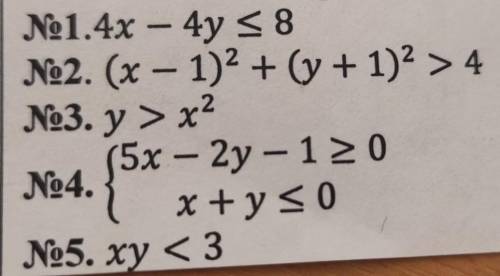 №1.4x − 4y ≤ 8
№2. (x − 1)² + (y + 1)² > 4
№3. y > x²
№4. {5x − 2y − 1 ≥ 0
x + y ≤ 0
№5. xy < 3